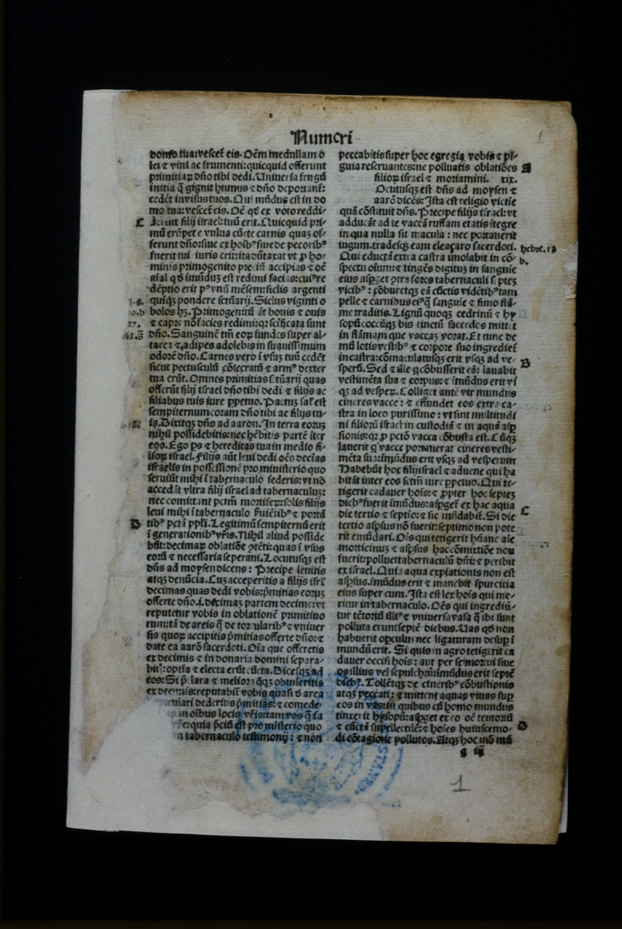 Numeri
domo tua: vescet̃ eis. Oẽm medullam o
lei ⁊ vini ac frumenti: quicquid offerunt
primitiaꝝ dño tibi dedi. Universa frugũ
initia q̃ gignit humus ⁊ dño deportant̃:
cedẽt in vsus tuos. Qui mũdus est in do
mo tua: vescet̃ eis. Oẽ qđ ex voto reddi-
filij israel: tuũ erit. Quicquid pri-
mũ erũpet e vulua cũcte carnis quaʒ of-
ferunt dño: siue ex hoĩbꝰ siue de pecoribꝰ
fuerit tui iuris erit: ita dũtaxat vt ꝓ ho-
minis primogenito preciũ accipias ⁊ oẽ
aĩal qđ imũdũʒ est redimi facias: cuiꝰ re
dẽptio erit pꝰ vnũ mẽsem: siclis argenti
quiqʒ pondere sctũarij. Siclus viginti o
bolos hʒ. Primogenitũ aũt bouis ⁊ ouis
⁊ capre nõ facies redimi: qꝛ scificata sunt
dño. Sanguinẽ tm̃ eoꝝ fundes super al-
tare: ⁊ adipes adolebis in suauissimum
odorẽ dño. Carnes vero ĩ vsuʒ tuũ cedẽt
sicut pectusculũ cõsecratũ ⁊ armꝰ dexter
tua erũt. Omnes primitias sctũarij quas
offerũt filij israel dño tibi dedi ⁊ filijs ac
filiabus tuis iure ꝑpetuo. Pactuʒ sal est
sempiternum coram dño tibi ac filijs tu-
is. Dixitqʒ dñs ad aaron. In terra eorũ
nihil possidebitis: nec hẽbitis partẽ iter
eos. Ego ps ⁊ hereditas tua in medio fi-
lioꝝ israel. Filijs aũt leui dedi oẽs decias
israelis in possessionẽ pro ministerio quo
seruiũt mihi ĩ tabernaculo federis: vt nõ
accedãt vltra filij israel ad tabernaculuʒ:
nec comittant petm̃ mortiferũ: solis filijs
leui mihi ĩ tabernaculo seruiẽtibꝰ ⁊ portã
tibꝰ petã ppli. Legitimũ sempiternũ erit
ĩ generationibꝰ vr̃is. Nihil aliud posside
bũt: decimaꝝ oblatiõe ɔtẽti: quas ĩ vsus
eorũ ⁊ necessaria seperaui. Locutusqʒ est
dñs ad moysen dicens: Precipe leuitis
atqʒ denũcia. Cuʒ acceperitis a filijs isrl̃
decimas quas dedi vobis: pmitias eorũ
offerte dño. i. decimaʒ partem decime: vt
reputetur vobis in oblationẽ primitiuo
rum: tã de areis q̃ de torcularibꝰ ⁊ vniuer
sis quoꝝ accipitis pmitias offerte dño: ⁊
date ea aarõ sacerdoti. Oĩa que offeretis
ex decimis ⁊ in donaria domini separa-
bitis: optĩa ⁊ electa erũt cũcta. Dicesqʒ ad
eos: Si pclara ⁊ meliora q̃qʒ obtuleritis
ex decimis: reputabit̃ vobis quasi õ area
torculari dederitis pmitias: ⁊ comede-
in oĩbus locis vr̃is: tam vos q̃ fa
quia pciũ est pro misterio quo
in tabernaculo testimonij: ⁊ non
peccabitis super hoc egregia vobis ⁊ pĩ-
guia reseruantes: ne polluatis oblatiões
filioꝝ israel ⁊ moriamini. xix.
Locutusqʒ est dñs ad moysen ⁊
aarõ dicẽs: Ista est religio victie
quã cõstituit dñs. Precipe filijs israel: vt
adducãt ad te vaccã ruffam etatis itegre
in qua nulla sit macula: nec portauerit
iugum. tradesqʒ eam eleaçaro sacerdoti.
Qui eductã extra castra imolabit in cõ-
spectu oĩum: ⁊ tingẽs digituʒ in sanguie
eius aspget cõtra fores tabernaculi septeʒ
vicibꝰ: cõburetqʒ eã cũctis vidẽtibꝰ tam
pelle ⁊ carnibus eiꝰ q̃ sanguie ⁊ fimo flã-
me traditis. Lignũ quoqʒ cedrinũ ⁊ hy
sopũ coccũqʒ bis tinctũ sacerdos mittet
in flãmam que vaccaʒ vorat. Et tunc de
mũ lotis vestibꝰ ⁊ corpore suo ingrediet̃
in castra: cõmaculatusqʒ erit vsqʒ ad ve-
sperũ. Sed ⁊ ille q̃ cõbusserit eã: lauabit
vestimẽta sua ⁊ corpus: ⁊ imũdus erit vs
qʒ ad vesperũ. Colliget aute vir mundus
cineres vacce: ⁊ effundet eos extra ca-
stra in loco purissimo: vt sint multitudi
ni filiorũ israel in custodiã ⁊ in aquã asp
sionis: qꝛ ꝓ pctõ vacca cõbusta est. Cũqʒ
lauerit qui vacce portauerat cineres vesti-
mẽta sua: imũdus erit vsqʒ ad vesperum
Habebũt hoc filij israel ⁊ aduene qui ha
bitãt inter eos sctm̃ iure ꝑpetuo. Qui te-
tigerit cadauer hoĩs: ⁊ ꝓpter hoc septeʒ
diebꝰ fuerit imũdus: aspget̃ ex hac aqua
die tertio ⁊ septĩo: ⁊ sic mũdabit̃. Si die
tertio aspsus nõ fuerit: septimo non pote
rit emũdari. Oĩs qui tetigerit hũane aĩe
morticinuʒ ⁊ aspsus hac cõmixtiõe non
fuerit: polluet tabernaculũ dñi: ⁊ peribit
ex israel. Quia aqua expiationis non est
aspsus. imũdus erit ⁊ manebit spurcitia
eius super eum. Ista est lex hoĩs qui mo-
ritur in tabernaculo. Oẽs qui ingrediũ-
tur tẽtoriũ illiꝰ ⁊ vniuersa vasa q̃ ibi sunt
polluta erunt septẽ diebus. Uas qđ non
habuerit opculũ: nec ligaturam desup ĩ
mundũ erit. Si quis in agro tetigerit ca
dauer occisi hoĩs: aut per se mortui siue
os illius vel sepulchrũ: imũdus erit septẽ
diebꝰ. Tollẽtqʒ de cineribꝰ cõbustionis
atqʒ peccati: ⁊ mittent aquas viuas sup
eos in vas: in quibus cũ homo mundus
tinxerit hysopũ: aspget ex eo oẽ tentoriũ
⁊ cũctã supellectilẽ: ⁊ hoĩes huiuscemo-
di cõtagione pollutos. Atqʒ hoc mõ mũ
g iij
A
hebre. 13
b.
B
C
D
C
D
1
1